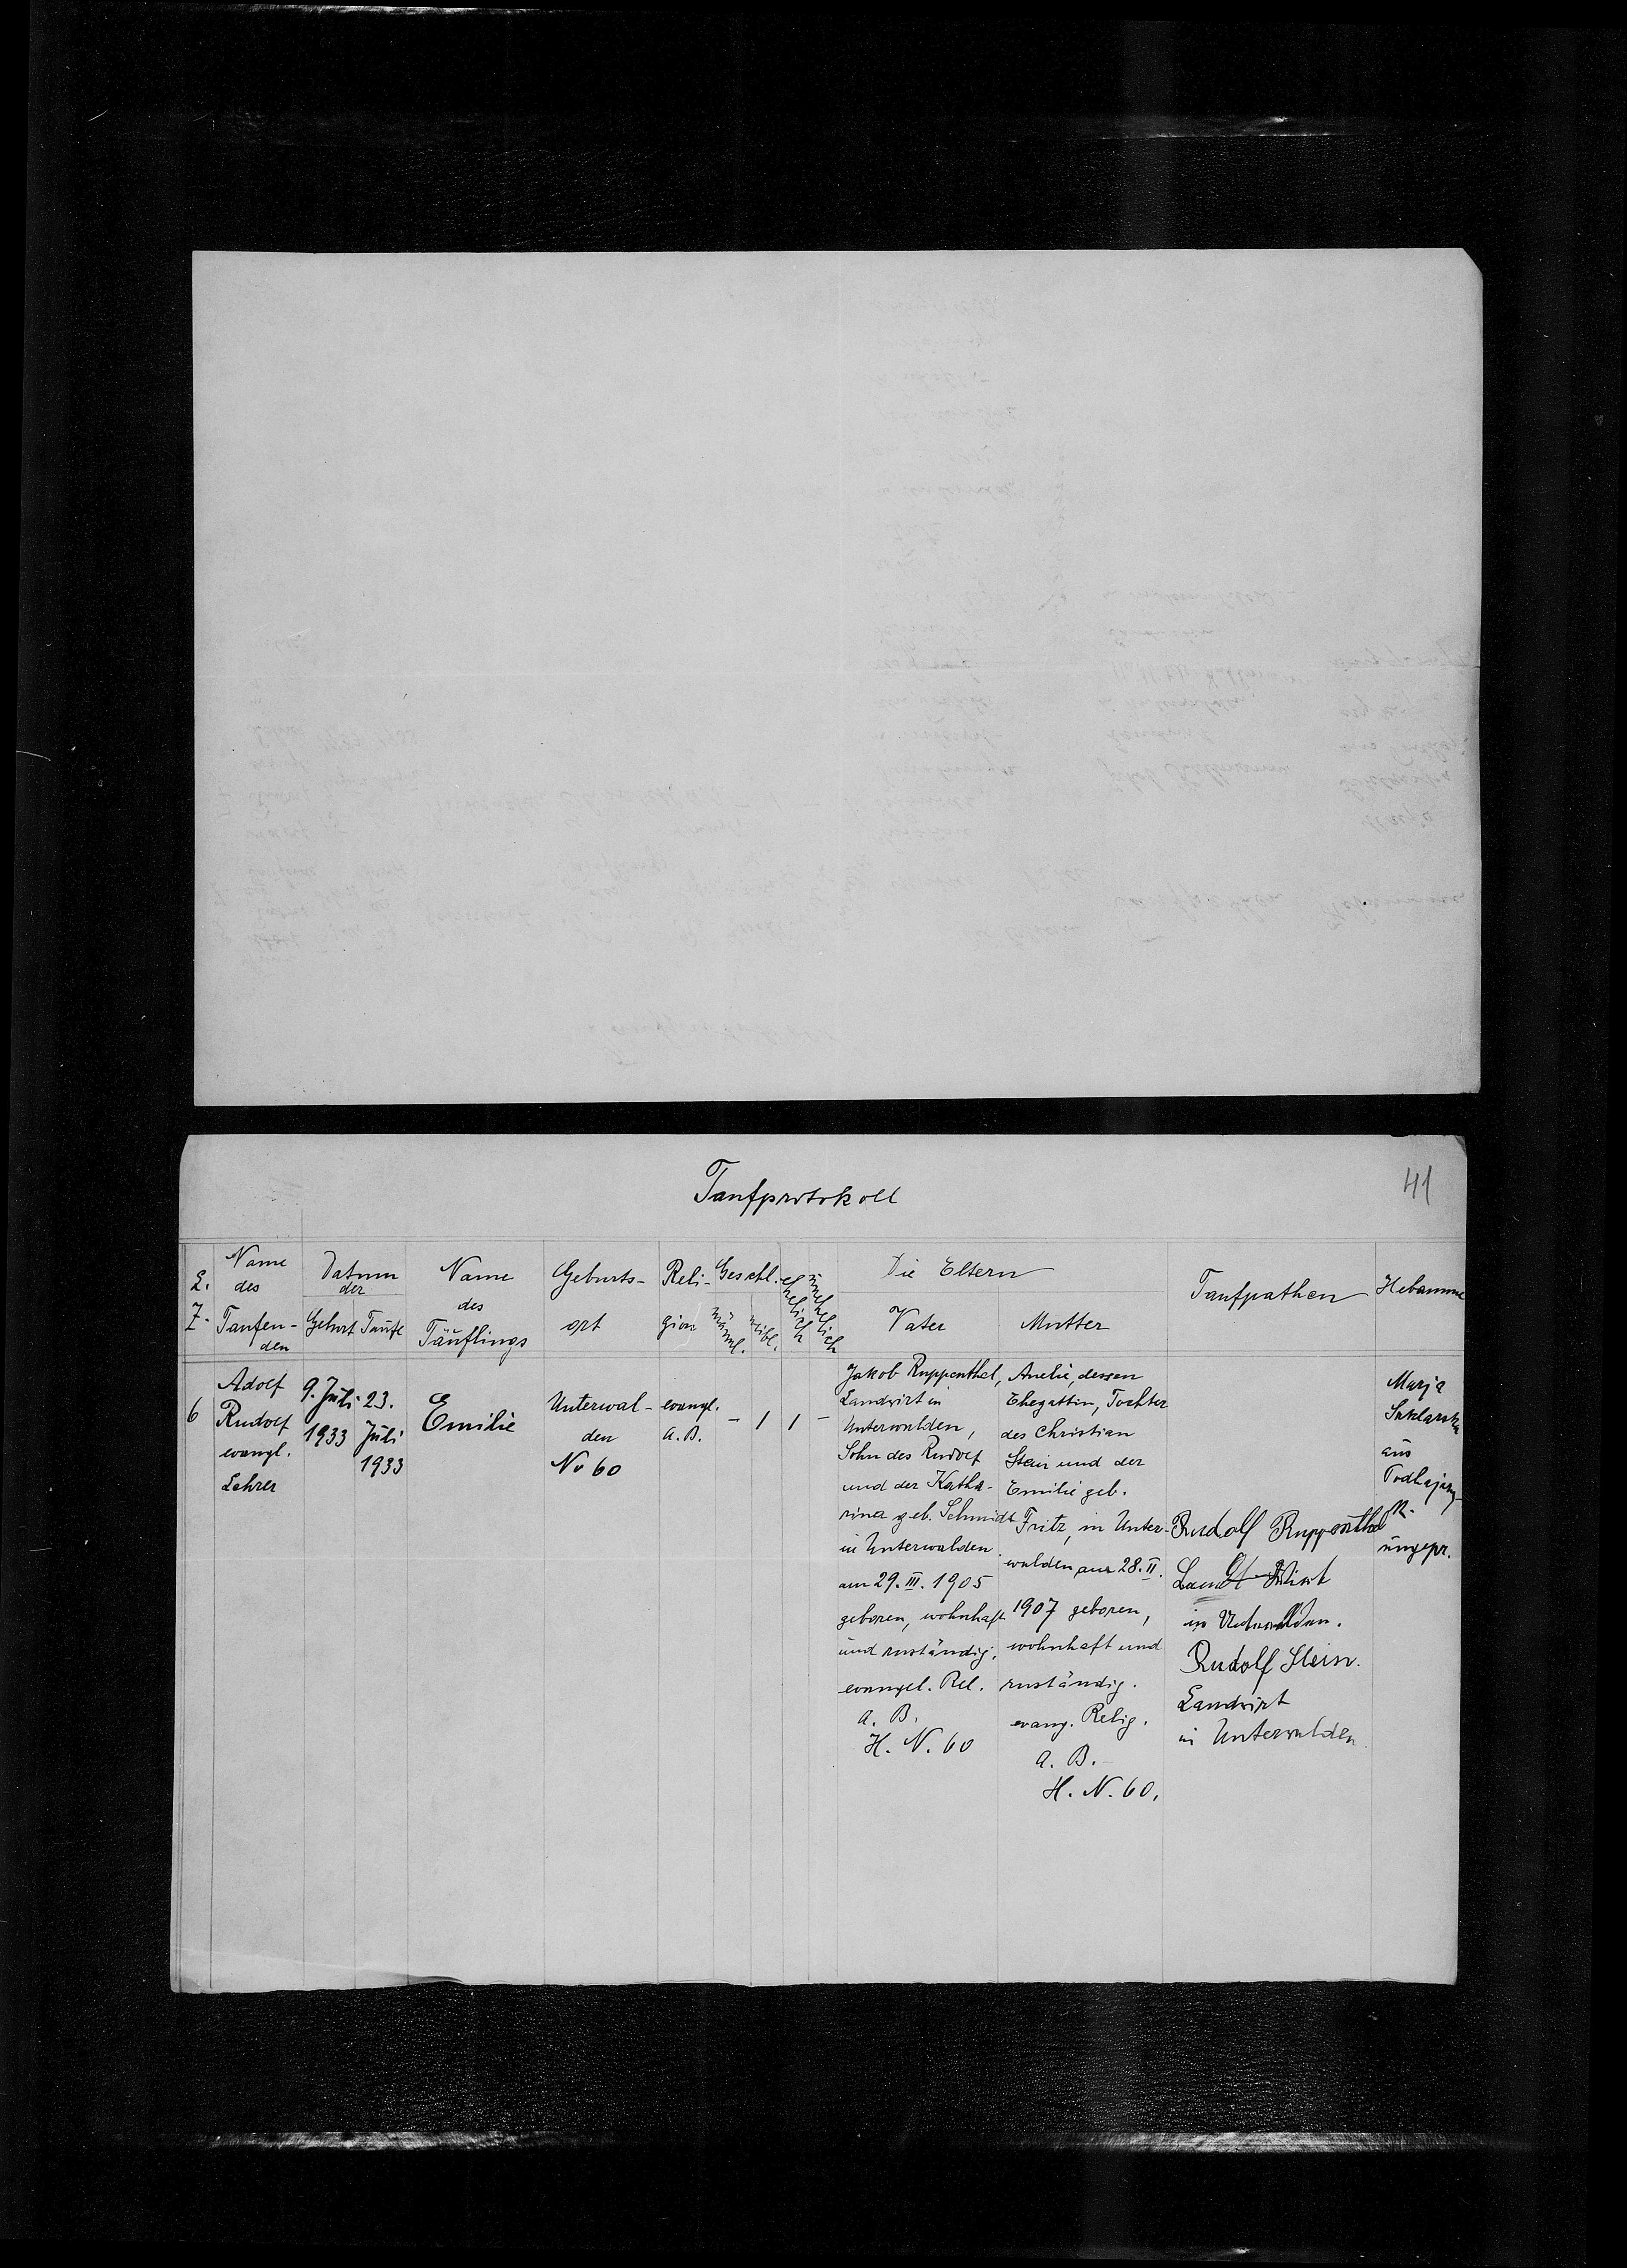 Taufprotokoll
41
L. Z.
Name des Taufen-den
Datum der
Geburt
Taufe
Name des Täuflings
Geburts-ort
Reli-gion
Geschl.
männl.
weibl.
ehelich
unehelich
Die Eltern
Vater
Mutter
Taufpathen
Hebamme
6
Adolf
Rudolf
evangl.
Lehrer
9. Juli
1933
23.
Juli
1933
Emilie
Unterwal-
den
No 60
evangl.
A. B.
-
1
1
-
Jakob Ruppenthal,
Landwirt in
Unterwalden,
Sohn des Rudolf
und der Katha-
rina geb. Schmidt
in Unterwalden
am 29. III. 1905
geboren, wohnhaft
und zuständig,
evangel. Rel.
A. B.
H. N. 60
Amelie, dessen
Ehegattin, Tochter
des Christian
Stein und der
Emilie geb.
Fritz, in Unter-
walden am 28. II.
1907 geboren,
wohnhaft und
zuständig.
evang. Relig.
A. B.
H. N. 60.
Rudolf Ruppenthal
Landwirt
in Unterwalden.
Rudolf Stein.
Landwirt
in Unterwalden.
Marja
aus
ungepr.